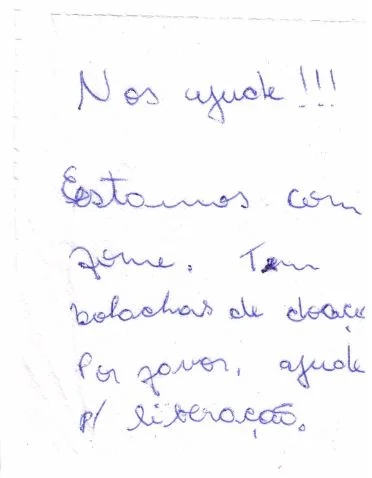 Nos ajude!!!
Estamos com
fome. Tem
bolachas de doaç
Por favor, ajude
p/ liberação.